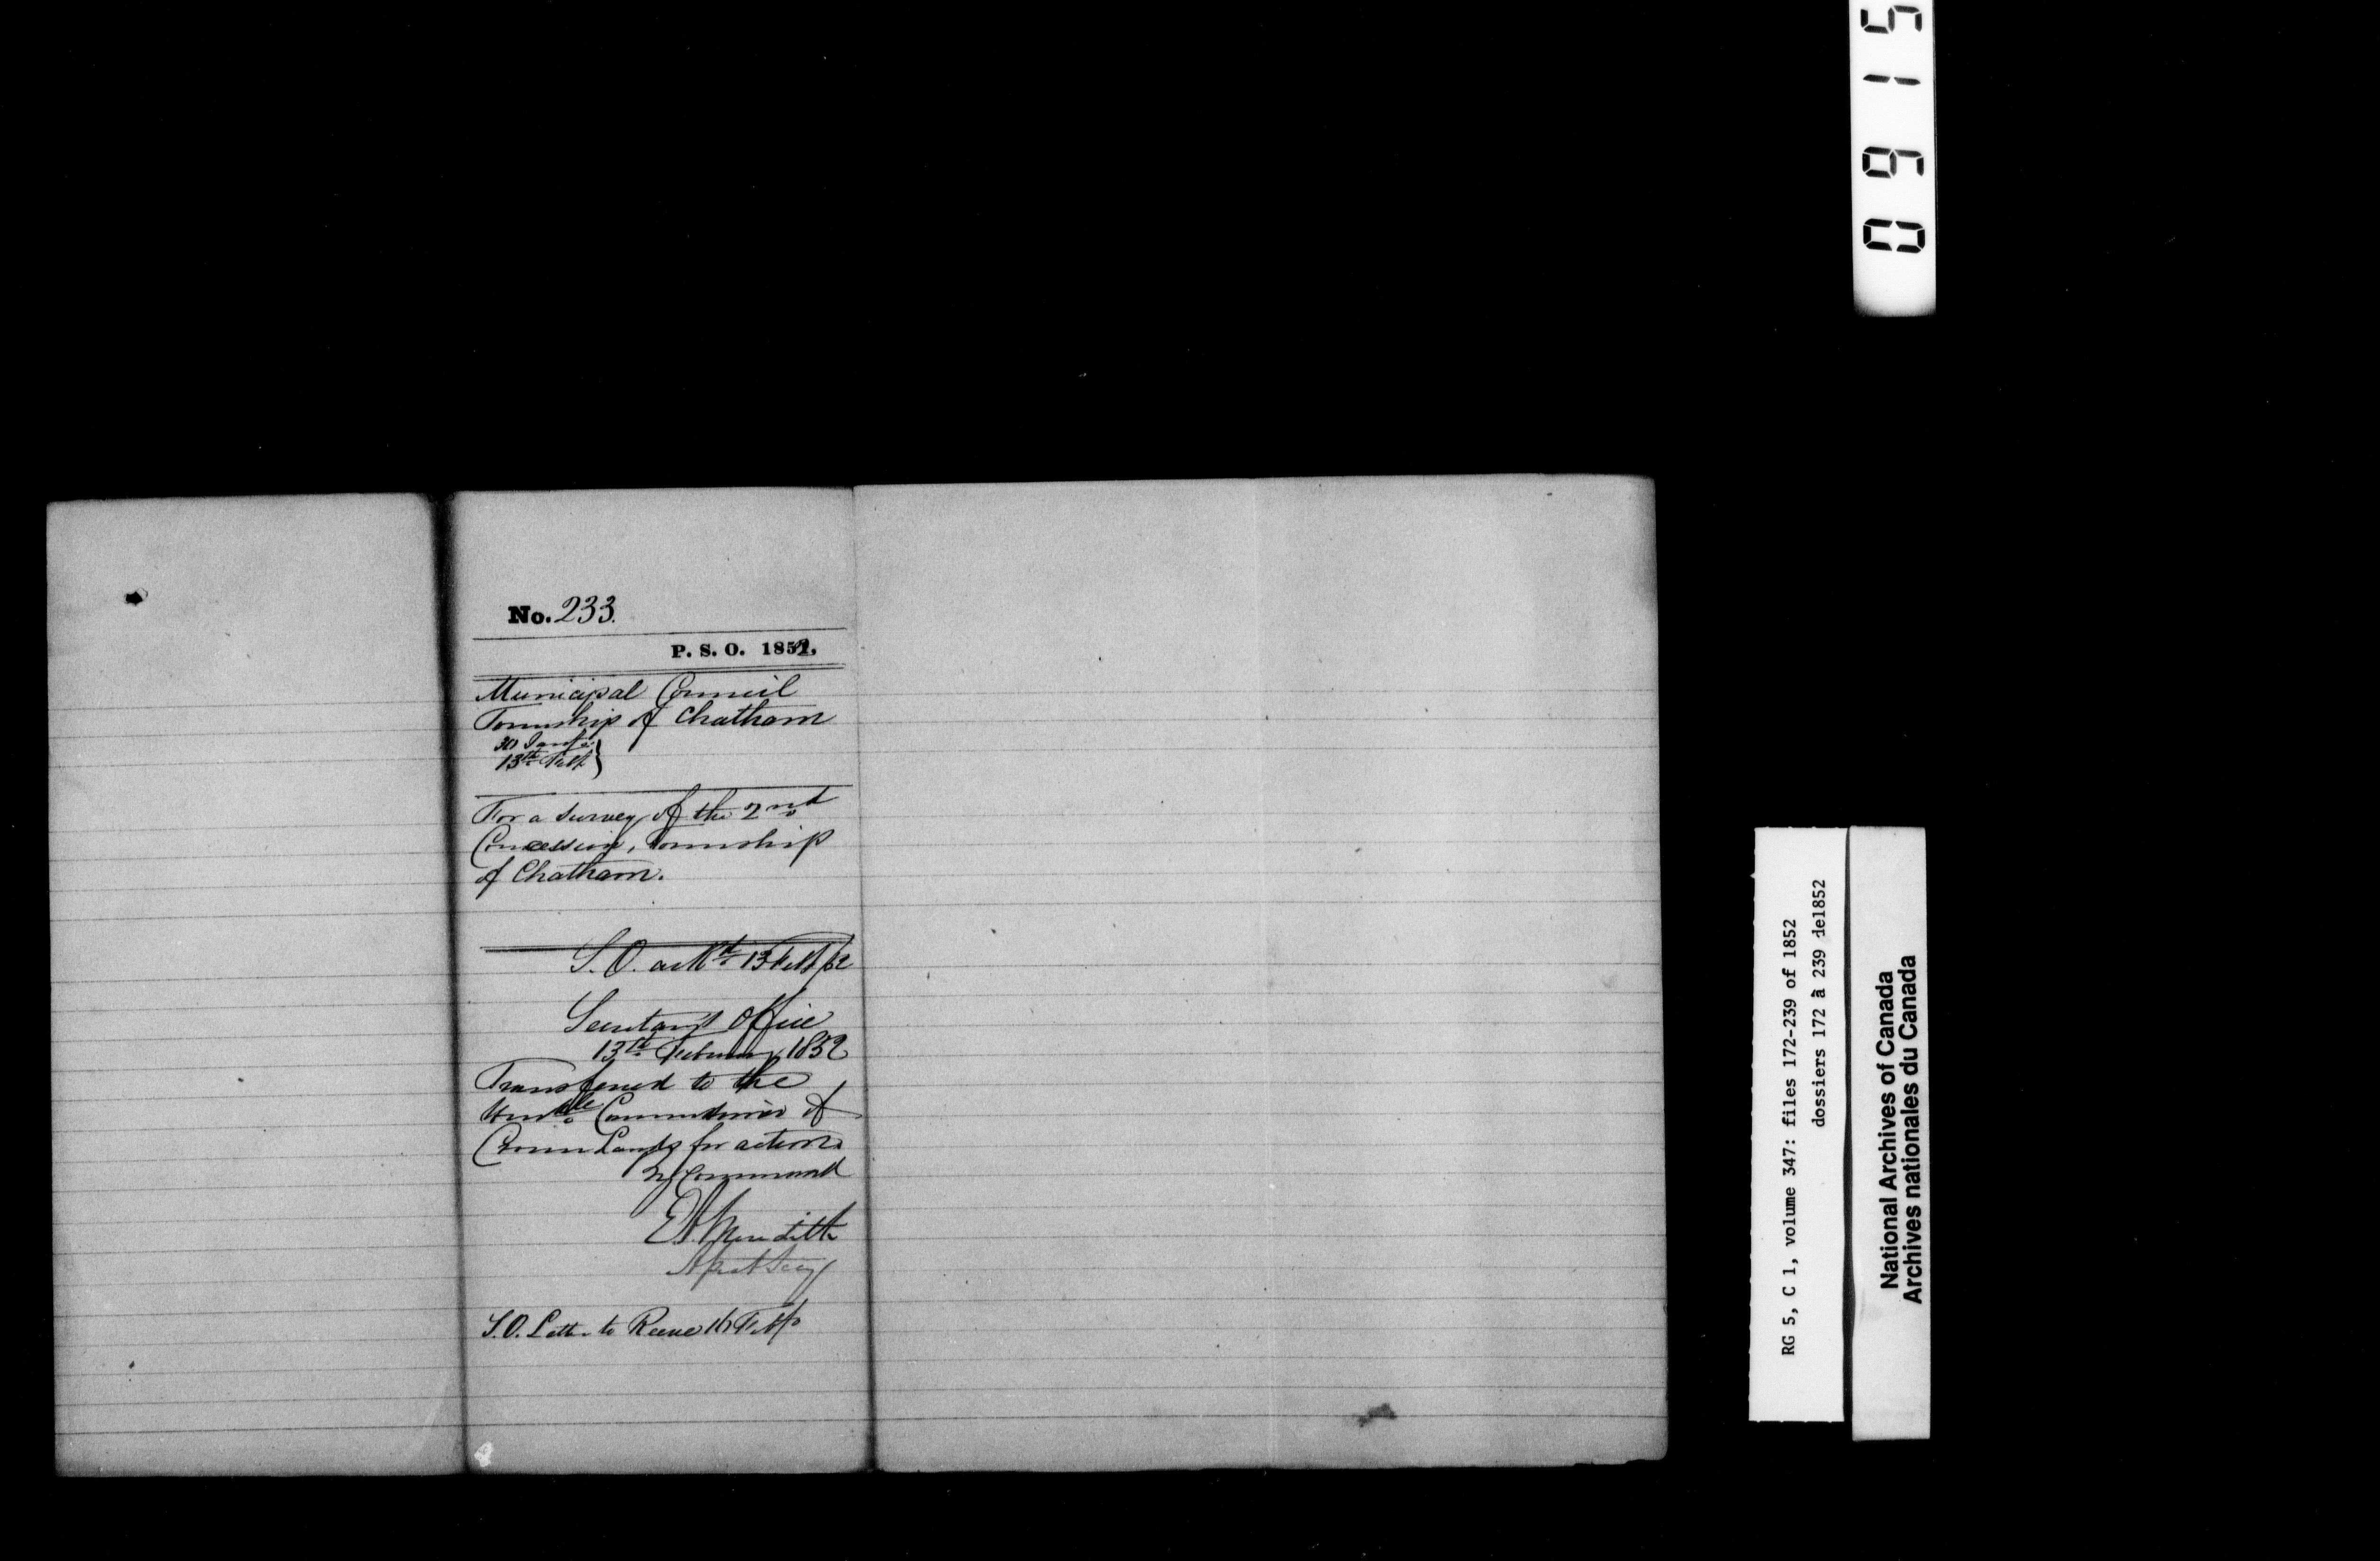 0915
No. 233.
P. S. O. 1852.
Municipal Council
Township of Chatham
30 Jany
13th Feby
For a Survey of the 2nd
Concession, Township
of Chatham.
S. O. ackd 13 Feby 52
Secretary's Office
13th February 1852
Transferred to the
Honble Commissioner of
Crown Lands for action.
By Command
E. A. Meredith
Asst Secy
S. O. Letter to Reeve 16 Feby
RG 5, C 1, volume 347: files 172-239 of 1852
dossiers 172 à 239 de1852
National Archives of Canada
Archives nationales du Canada